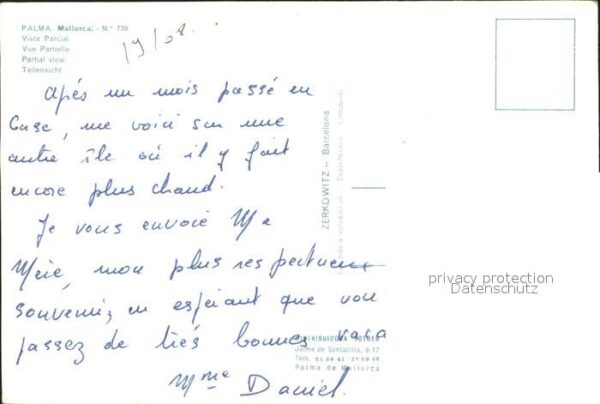 PALMA. Mallorca. - N.° 770
Vista Parcial
Vue Partielle
Partial view
Teilansicht
19/08.
Après un mois passé en
Corse, me voici sur une
autre île où il y fait
encore plus chaud.
Je vous envoie Me
Mère, mon plus respectueux
souvenir, en espérant que vous
passez de très bonnes vaca
Mme Daniel.
ZERKOWITZ - Barcelona
privacy protection
Datenschutz
Jaime de Santacilia, 8-12
Palma de Mallorca